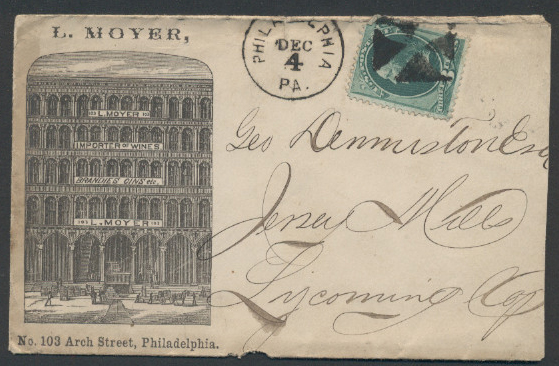 L. MOYER,
103 L. MOYER 103
IMPORTER OF WINES
BRANDIES GINS etc.
103 L. MOYER 103
No. 103 Arch Street, Philadelphia.
PHILADELPHIA
DEC
4
PA.
Geo Dennistoun Esq
Jersey Mills
Lycoming Co